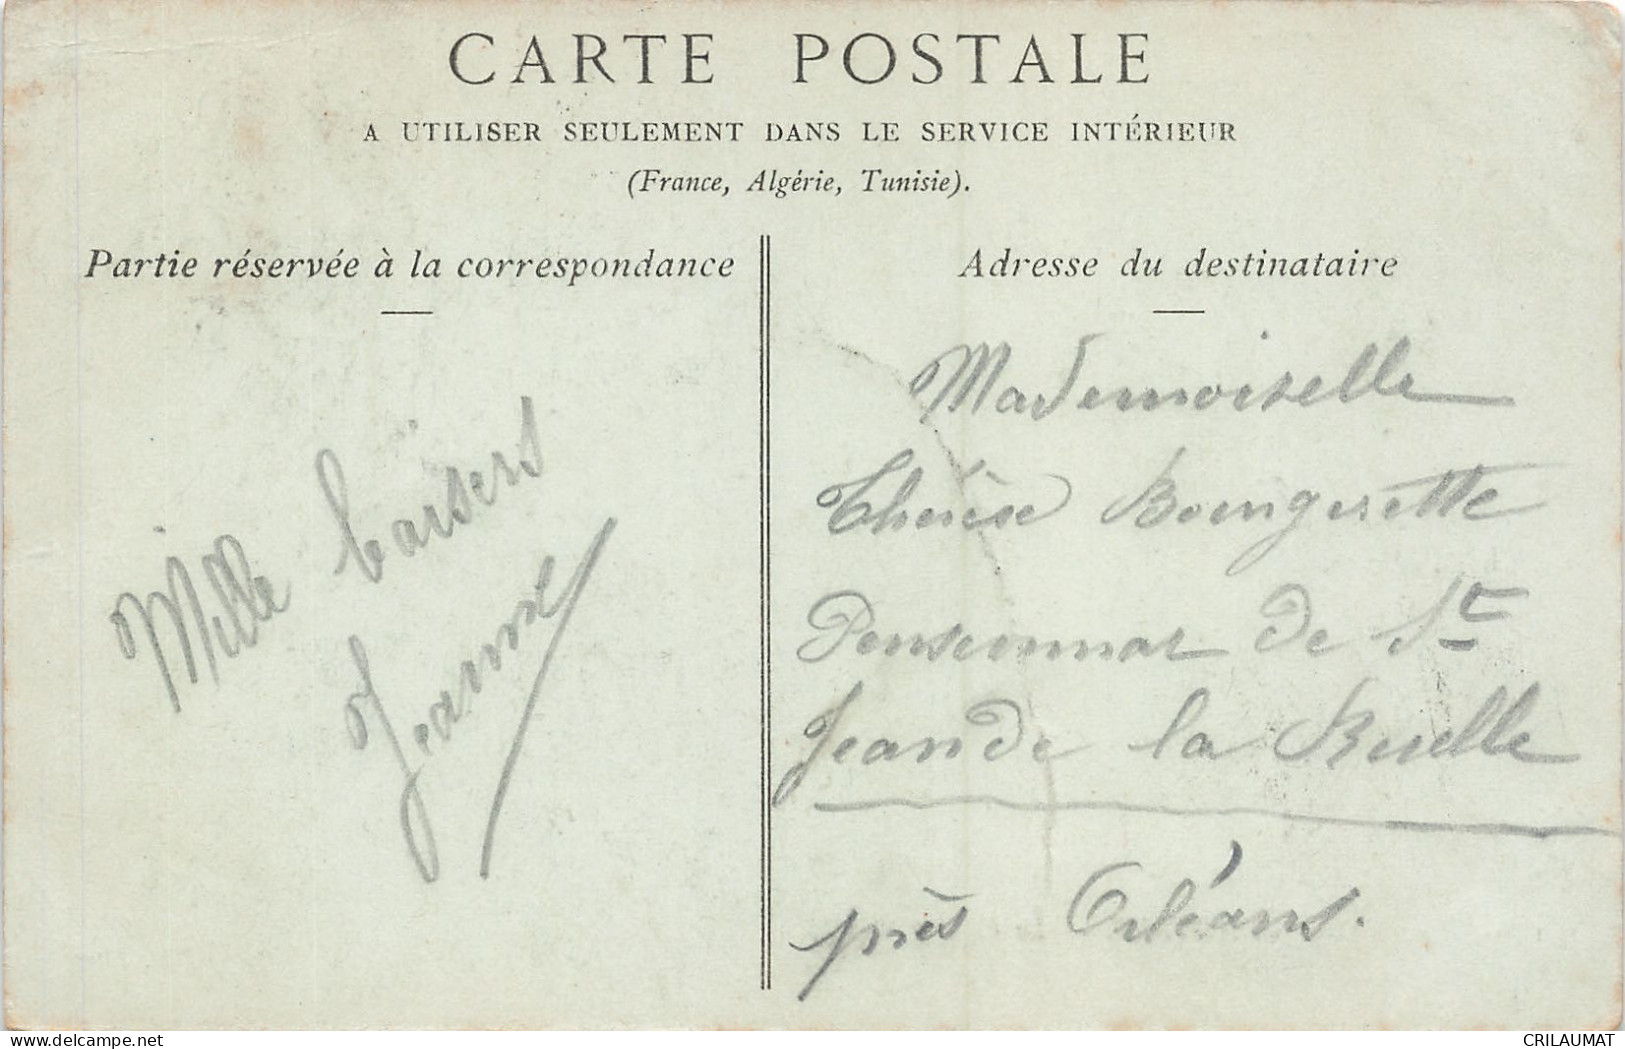 CARTE POSTALE
A UTILISER SEULEMENT DANS LE SERVICE INTÉRIEUR
(France, Algérie, Tunisie).
Partie réservée à la correspondance
Mille baisers
Jeanne
Adresse du destinataire
Mademoiselle
Thérèse
de St
Jean de la Ruelle
près Orléans.
www.delcampe.net
CRILAUMAT